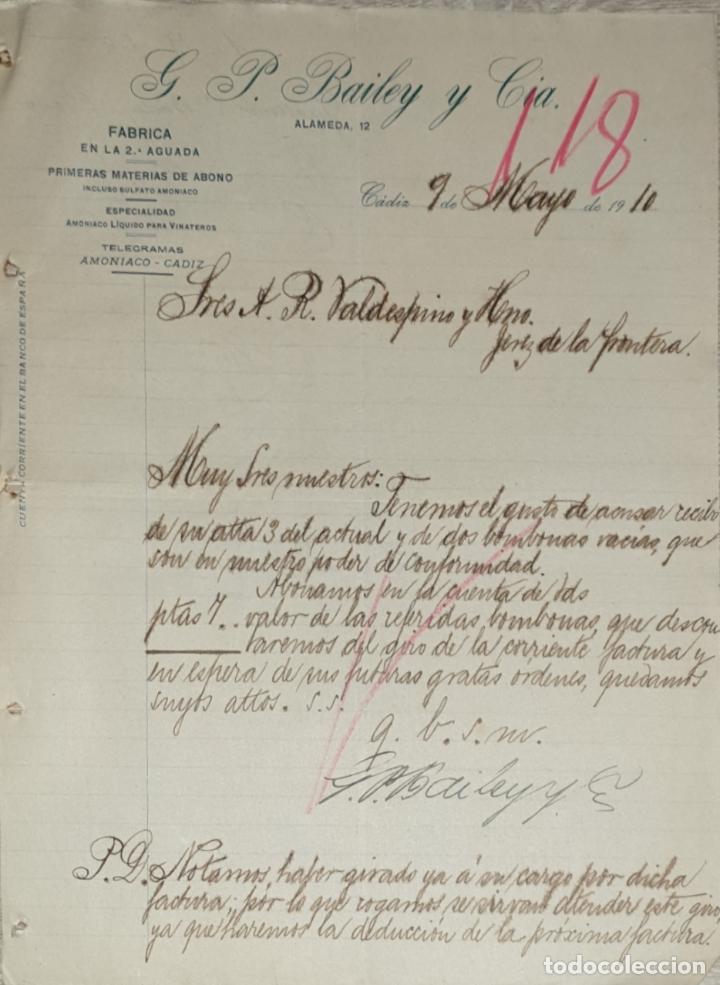 G. P. Bailey y Cia.
ALAMEDA, 12
118
FABRICA
EN LA 2.ª AGUADA
PRIMERAS MATERIAS DE ABONO
INCLUSO SULFATO AMONIACO
ESPECIALIDAD
AMONIACO LÍQUIDO PARA VINATEROS
TELEGRAMAS
AMONIACO - CADIZ
CUENTA CORRIENTE EN EL BANCO DE ESPAÑA
Cádiz 9 de Mayo de 1910
Sres A. R. Valdespino y Hno.
Jerez de la frontera.
Muy Sres nuestros:
Tenemos el gusto de acusar recibo
de su atta 3 del actual y de dos bombonas vacias, que
son en nuestro poder de conformidad.
Abonamos en la cuenta de Vds
ptas 7.. valor de las referidas bombonas, que descon
taremos del giro de la corriente factura y
en espera de sus futuras gratas órdenes, quedamos
suyos attos. s.s.
q. b. s. m.
G. P. Bailey y Cª
P.D. Notamos, haber girado ya á su cargo por dicha
factura, por lo que rogamos se sirvan atender este giro,
ya que haremos la deducción de la próxima factura.
todocoleccion